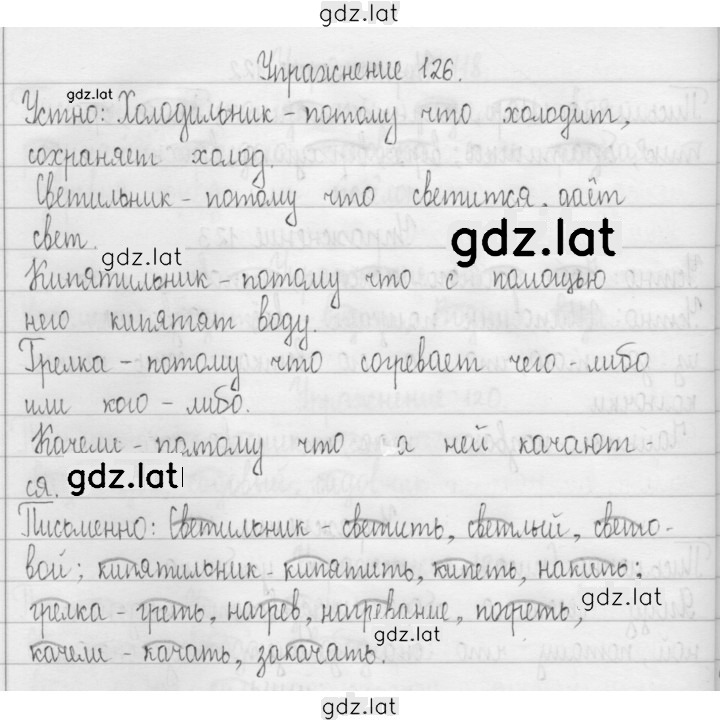 gdz.lat
Упражнение 126.
gdz.lat
Устно: Холодильник - потому что холодит,
сохраняет холод.
Светильник - потому что светится, даёт
свет.
gdz.lat
gdz.lat
Кипятильник - потому что с помощью
него кипятят воду.
Грелка - потому что согревает чего-либо
или кого-либо.
Качели - потому что на ней качают-
ся.
gdz.lat
Письменно: Светильник - светить, светлый, свето-
вой; кипятильник - кипятить, кипеть, накипь;
грелка - греть, нагрев, нагревание, погреть;
gdz.lat
качели - качать, закачать.
gdz.lat
gdz.lat